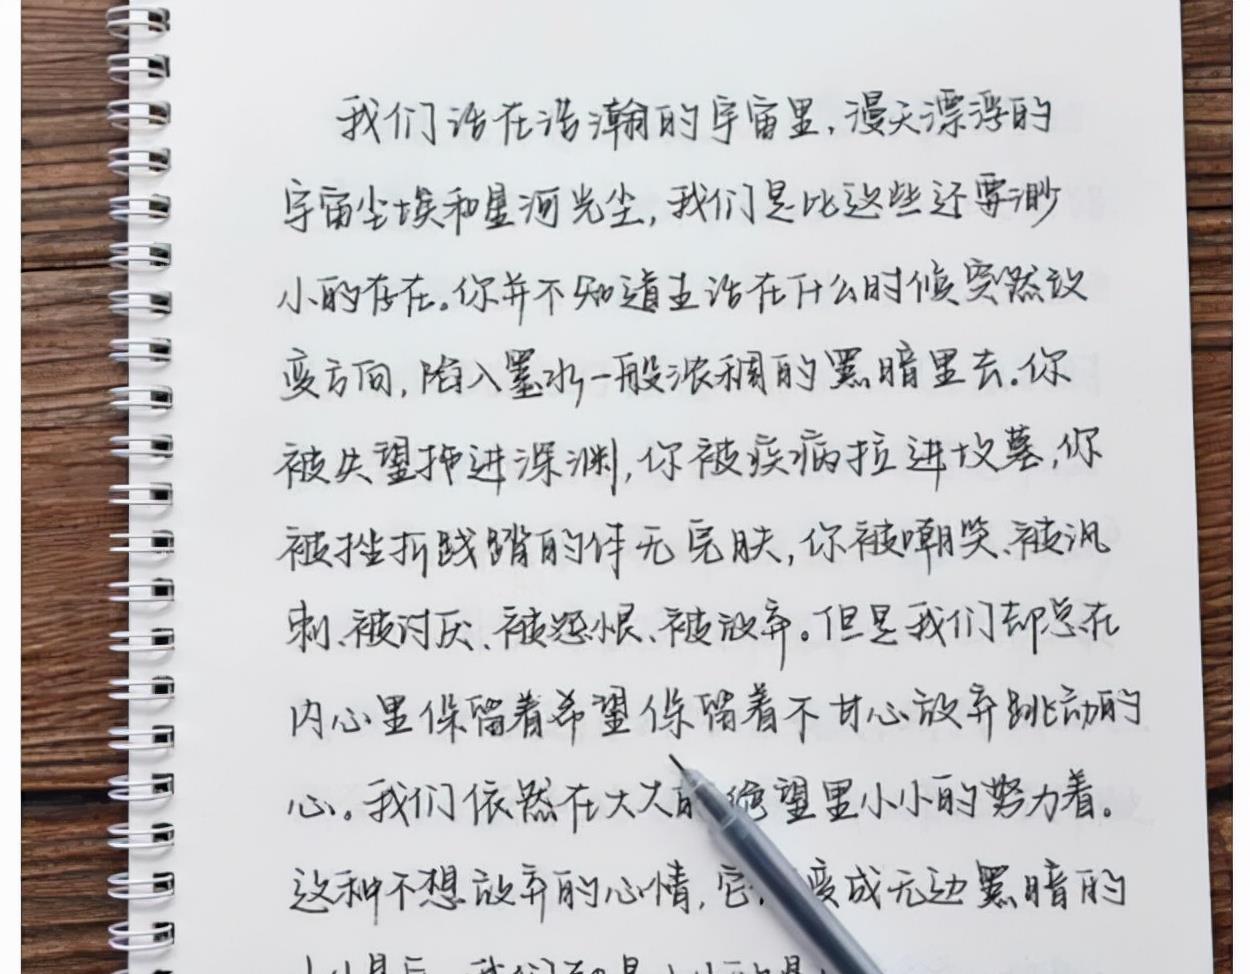 我们活在浩瀚的宇宙里，漫天漂浮的
宇宙尘埃和星河光尘，我们是比这些还要渺
小的存在。你并不知道生活在什么时候突然改
变方向，陷入墨水一般浓稠的黑暗里去。你
被失望拖进深渊，你被疾病拉进坟墓，你
被挫折践踏的体无完肤，你被嘲笑、被讽
刺、被讨厌、被怨恨、被放弃。但是我们却总在
内心里保留着希望保留着不甘心放弃跳动的
心。我们依然在大大的绝望里小小的努力着。
这种不想放弃的心情，它变成无边黑暗的